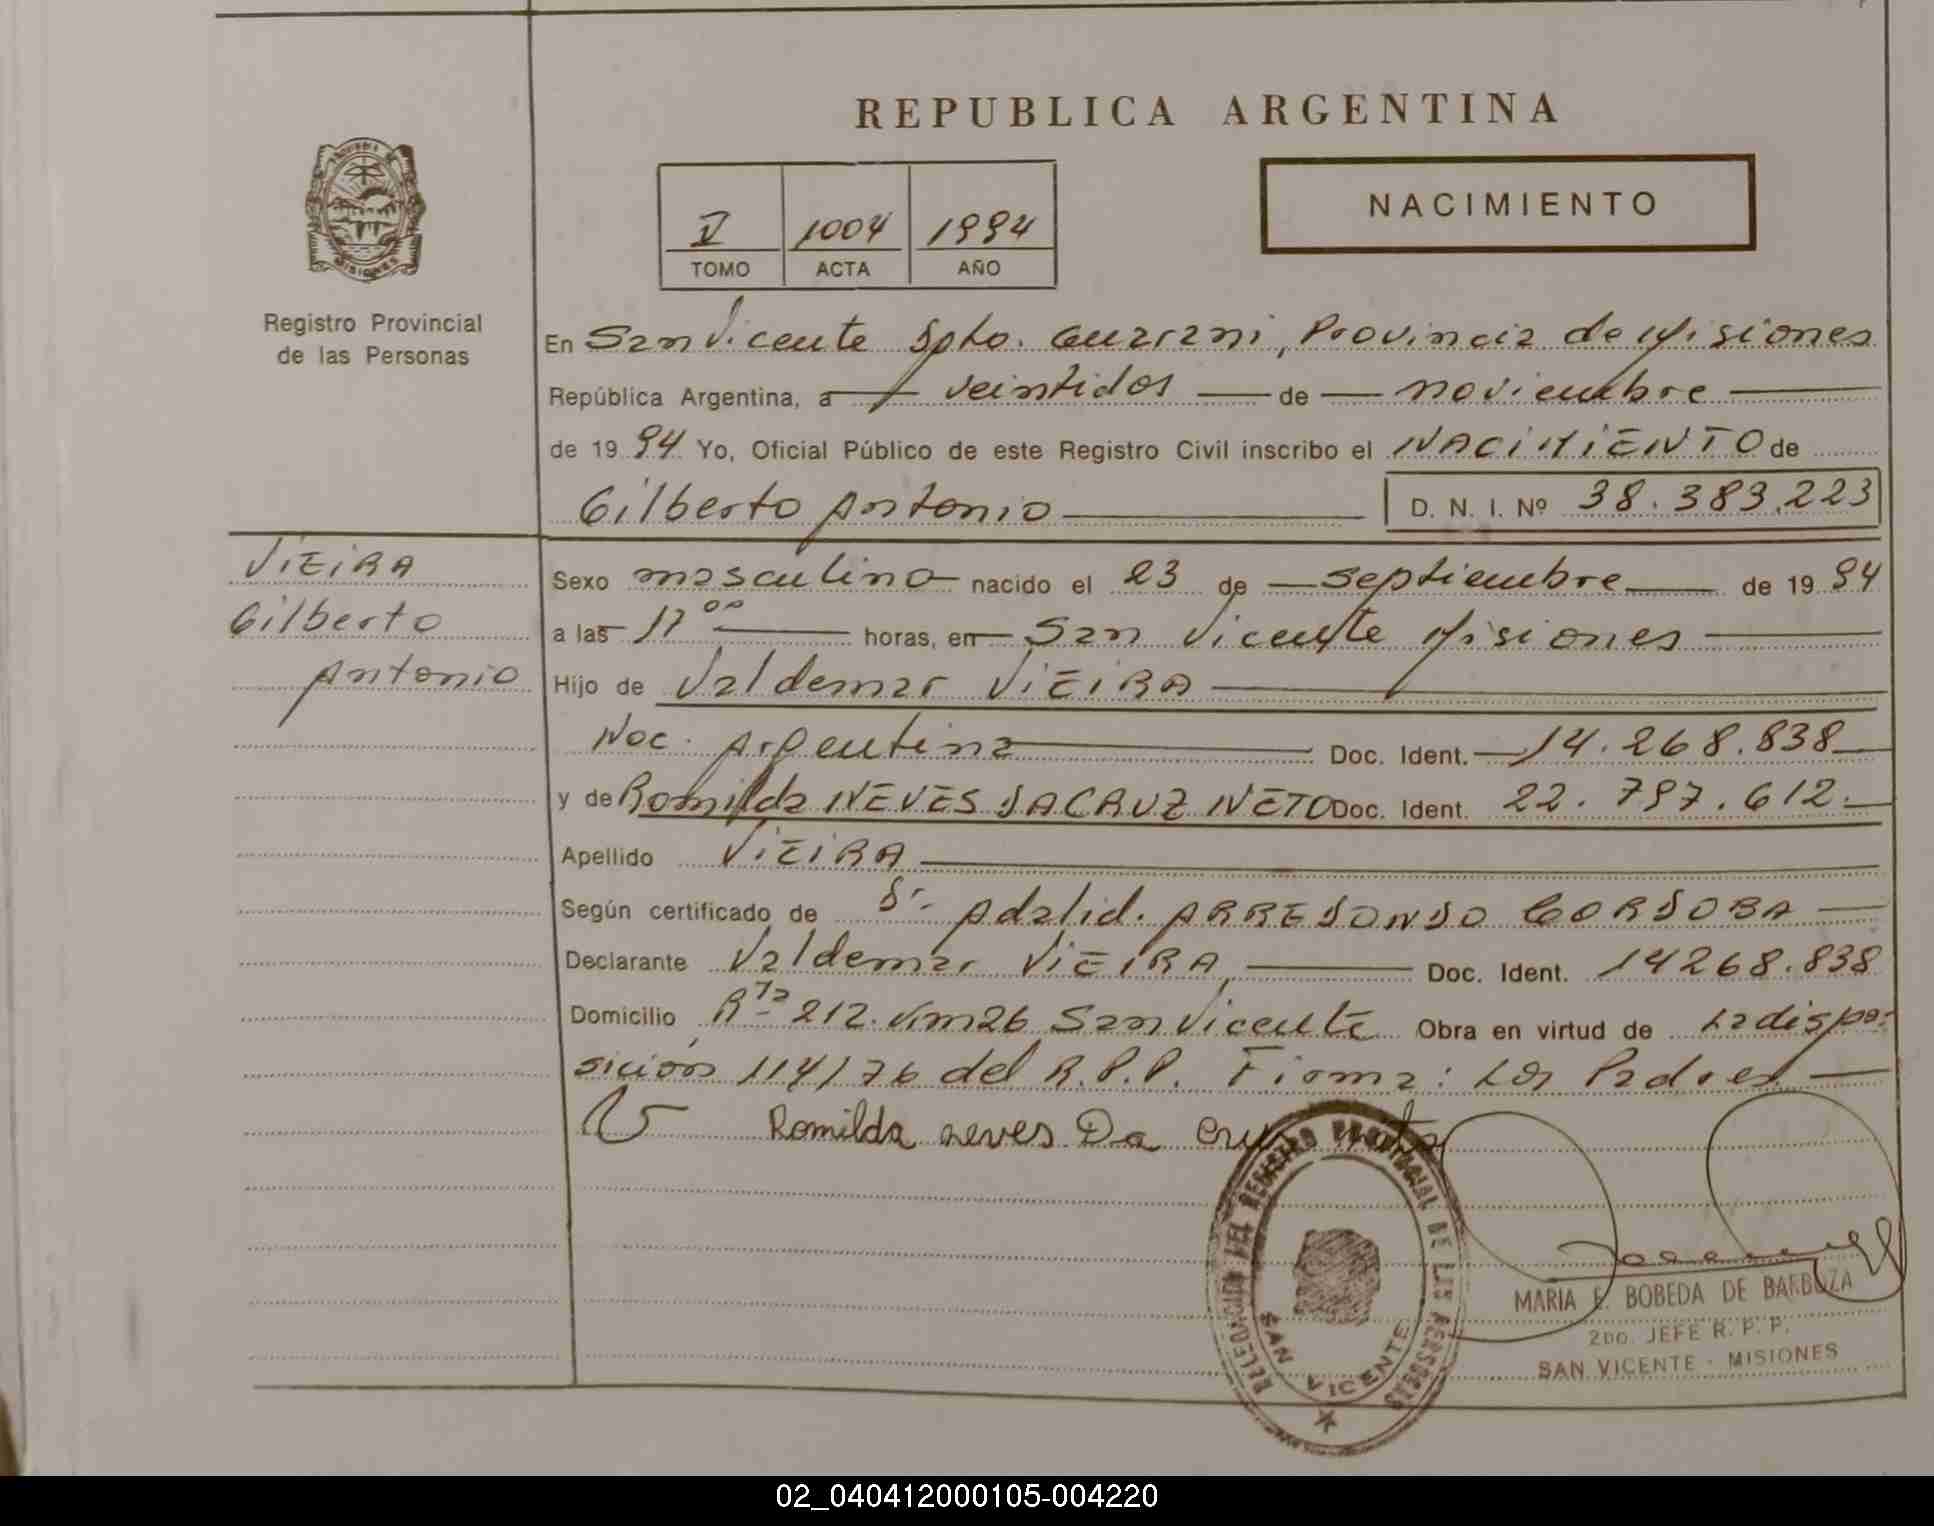 REPUBLICA ARGENTINA
NACIMIENTO
V 1004 1994
TOMO ACTA AÑO
Registro Provincial
de las Personas
En San Vicente Dpto. Guarani, Provincia de Misiones
República Argentina, a veintidos de noviembre
de 1994 Yo, Oficial Público de este Registro Civil inscribo el NACIMIENTO de
Gilberto Antonio D. N. I. Nº 38.383.223
VIEIRA
Gilberto
Antonio
Sexo masculino nacido el 23 de septiembre de 1994
a las 17 00 horas, en San Vicente Misiones
Hijo de Valdemar VIEIRA
Nac. Argentina Doc. Ident. 14.268.838
y de Romilda NEVES DA CRUZ NETO Doc. Ident. 22.797.612.
Apellido VIEIRA
Según certificado de Dr. Adalid. ARREDONDO CORDOBA
Declarante Valdemar VIEIRA, Doc. Ident. 14268.838
Domicilio Rta 212. Km26 San Vicente Obra en virtud de La dispo-
sición 114/76 del R.P.P. Firma: Los Padres
Romilda neves Da Cruz neto
DELEGACION DEL REGISTRO PROVINCIAL DE LAS PERSONAS
SAN VICENTE
MARIA E. BOBEDA DE BARBOZA
2DO. JEFE R. P. P.
SAN VICENTE - MISIONES
02_040412000105-004220